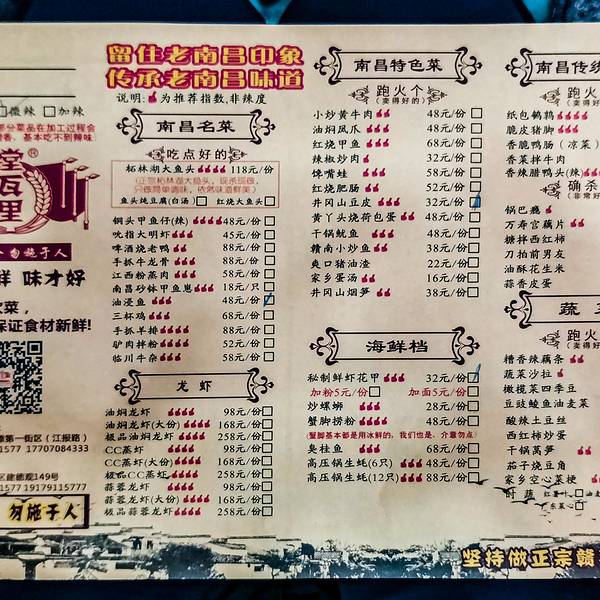 微辣 加辣
部分菜品在加工过程会
基本吃不到辣味
堂
瓦
里
®
勿施于人
鲜 味才好
保证食材新鲜!
第一街区(江报路)
1577 17707084333
区建德观149号
1577 19179115777
勿施于人
留住老南昌印象
传承老南昌味道
说明: 为推荐指数,非辣度
南昌名菜
吃点好的
柘林湖大鱼头 118元/份
鱼头炖豆腐(白汤) 红烧大鱼头
铜头甲鱼仔(辣) 48元/份
吮指大明虾 45元/份
啤酒烧老鸭 88元/份
手抓牛龙骨 88元/份
江西粉蒸肉 58元/份
南昌砂钵甲鱼崽 18元/只
油浸鱼 48元/份
三杯鸡 68元/份
手抓羊排 88元/份
驴肉拌粉 52元/份
临川牛杂 58元/份
龙虾
油焖龙虾 98元/份
油焖龙虾(大份) 168元/份
极品油焖龙虾 258元/份
CC蒸虾 98元/份
CC蒸虾(大份) 168元/份
极品CC蒸虾 258元/份
蒜蓉龙虾 98元/份
蒜蓉龙虾(大份) 168元/份
极品蒜蓉龙虾 258元/份
南昌特色菜
跑火个
(卖得好的)
小炒黄牛肉 48元/份
油焖凤爪 48元/份
红烧甲鱼 68元/份
辣椒炒肉 32元/份
馋嘴蛙 58元/份
红烧肥肠 52元/份
井冈山豆皮 32元/份
黄丫头烧荷包蛋 48元/份
干锅鱿鱼 48元/份
赣南小炒鱼 38元/份
爽口猪油渣 22元/份
家乡蛋汤 16元/份
井冈山烟笋 38元/份
海鲜档
秘制鲜虾花甲 32元/份
加粉5元/份 加面5元/份
炒螺蛳 28元/份
蟹脚捞粉 48元/份
(蟹脚基本都是用冰鲜的,我们也是,介意勿点)
臭桂鱼 68元/份
高压锅生蚝(6只) 48元/份
高压锅生蚝(12只) 88元/份
南昌传统
跑火
(卖得好
纸包鹌鹑
脆皮猪脚
香脆鸭肠(凉菜)
香菜拌牛肉
香辣腊鸭头(
确杀
(非常好
锅巴瘾
万寿宫藕片
糖拌西红柿
刀拍前男友
油酥花生米
蒜香皮蛋
蔬
跑火
(卖得好
糟香辣藕条
蔬菜沙拉
橄榄菜四季豆
豆豉鲮鱼油麦菜
酸辣土豆丝
西红柿炒蛋
干锅莴笋
茄子烧豆角
家乡空心菜梗
时蔬
东菜心
坚持做正宗赣